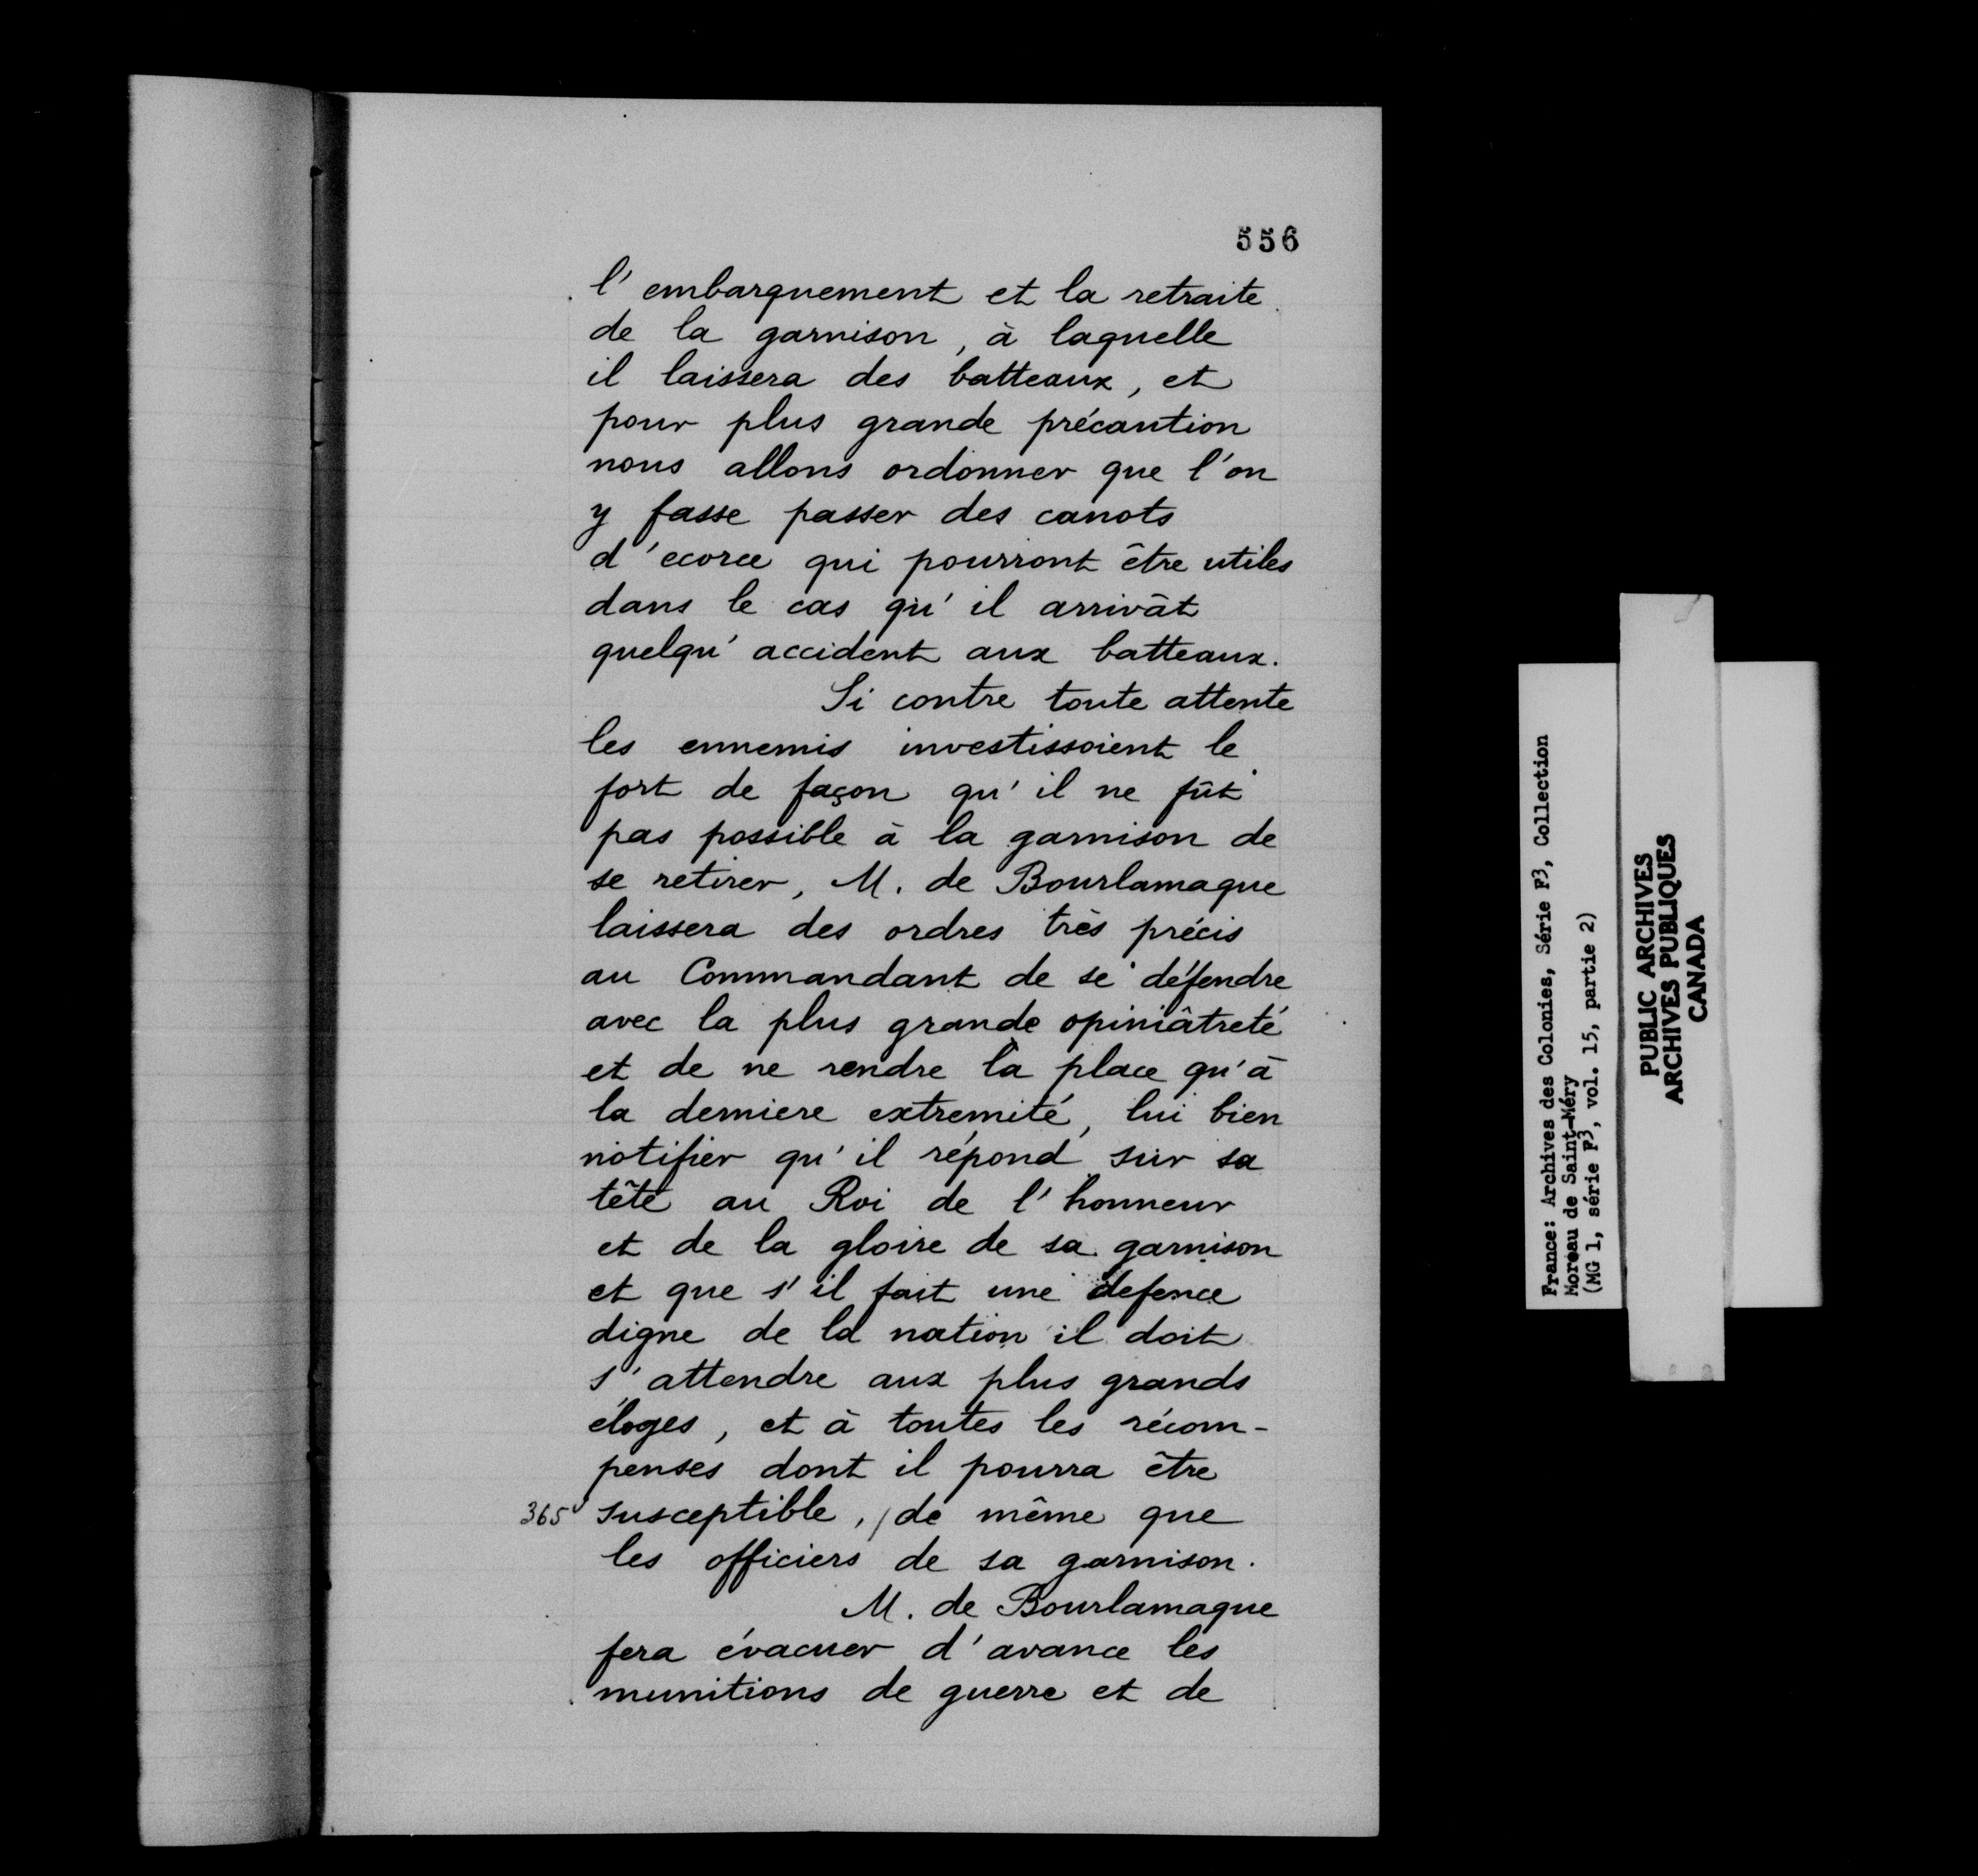 556
l'embarquement et la retraite
de la garnison, à laquelle
il laissera des batteaux, et
pour plus grande précaution
nous allons ordonner que l'on
y fasse passer des canots
d'ecorce qui pourront être utiles
dans le cas qu'il arrivât
quelqu'accident aux batteaux.
Si contre toute attente
les ennemis investissoient le
fort de façon qu'il ne fût
pas possible à la garnison de
se retirer, M. de Bourlamaque
laissera des ordres très précis
au Commandant de se défendre
avec la plus grande opiniâtreté
et de ne rendre la place qu'à
la derniere extremité, lui bien
notifier qu'il répond sur sa
tête au Roi de l'honneur
et de la gloire de sa garnison
et que s'il fait une defence
digne de la nation il doit
s'attendre aux plus grands
éloges, et à toutes les récom-
penses dont il pourra être
365 susceptible, / de même que
les officiers de sa garnison.
M. de Bourlamaque
fera évacuer d'avance les
munitions de guerre et de
France: Archives des Colonies, Série F3, Collection
Moreau de Saint-Méry
(MG 1, série F3, vol. 15, partie 2)
PUBLIC ARCHIVES
ARCHIVES PUBLIQUES
CANADA